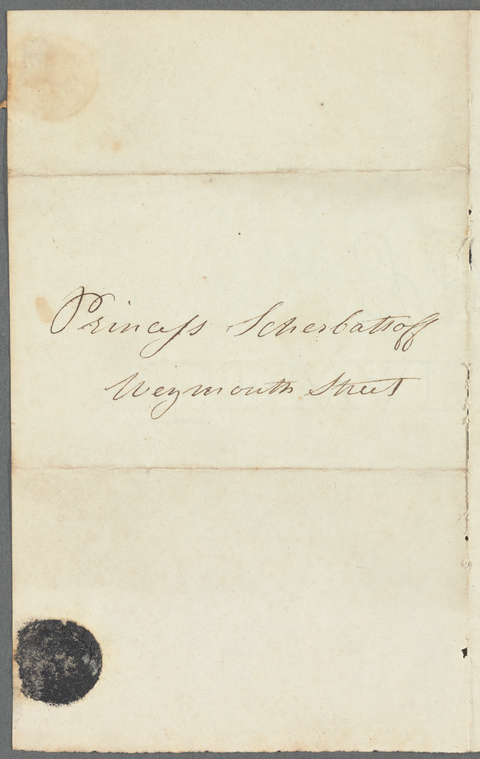 Princess Scherbattoff
Weymouth Street